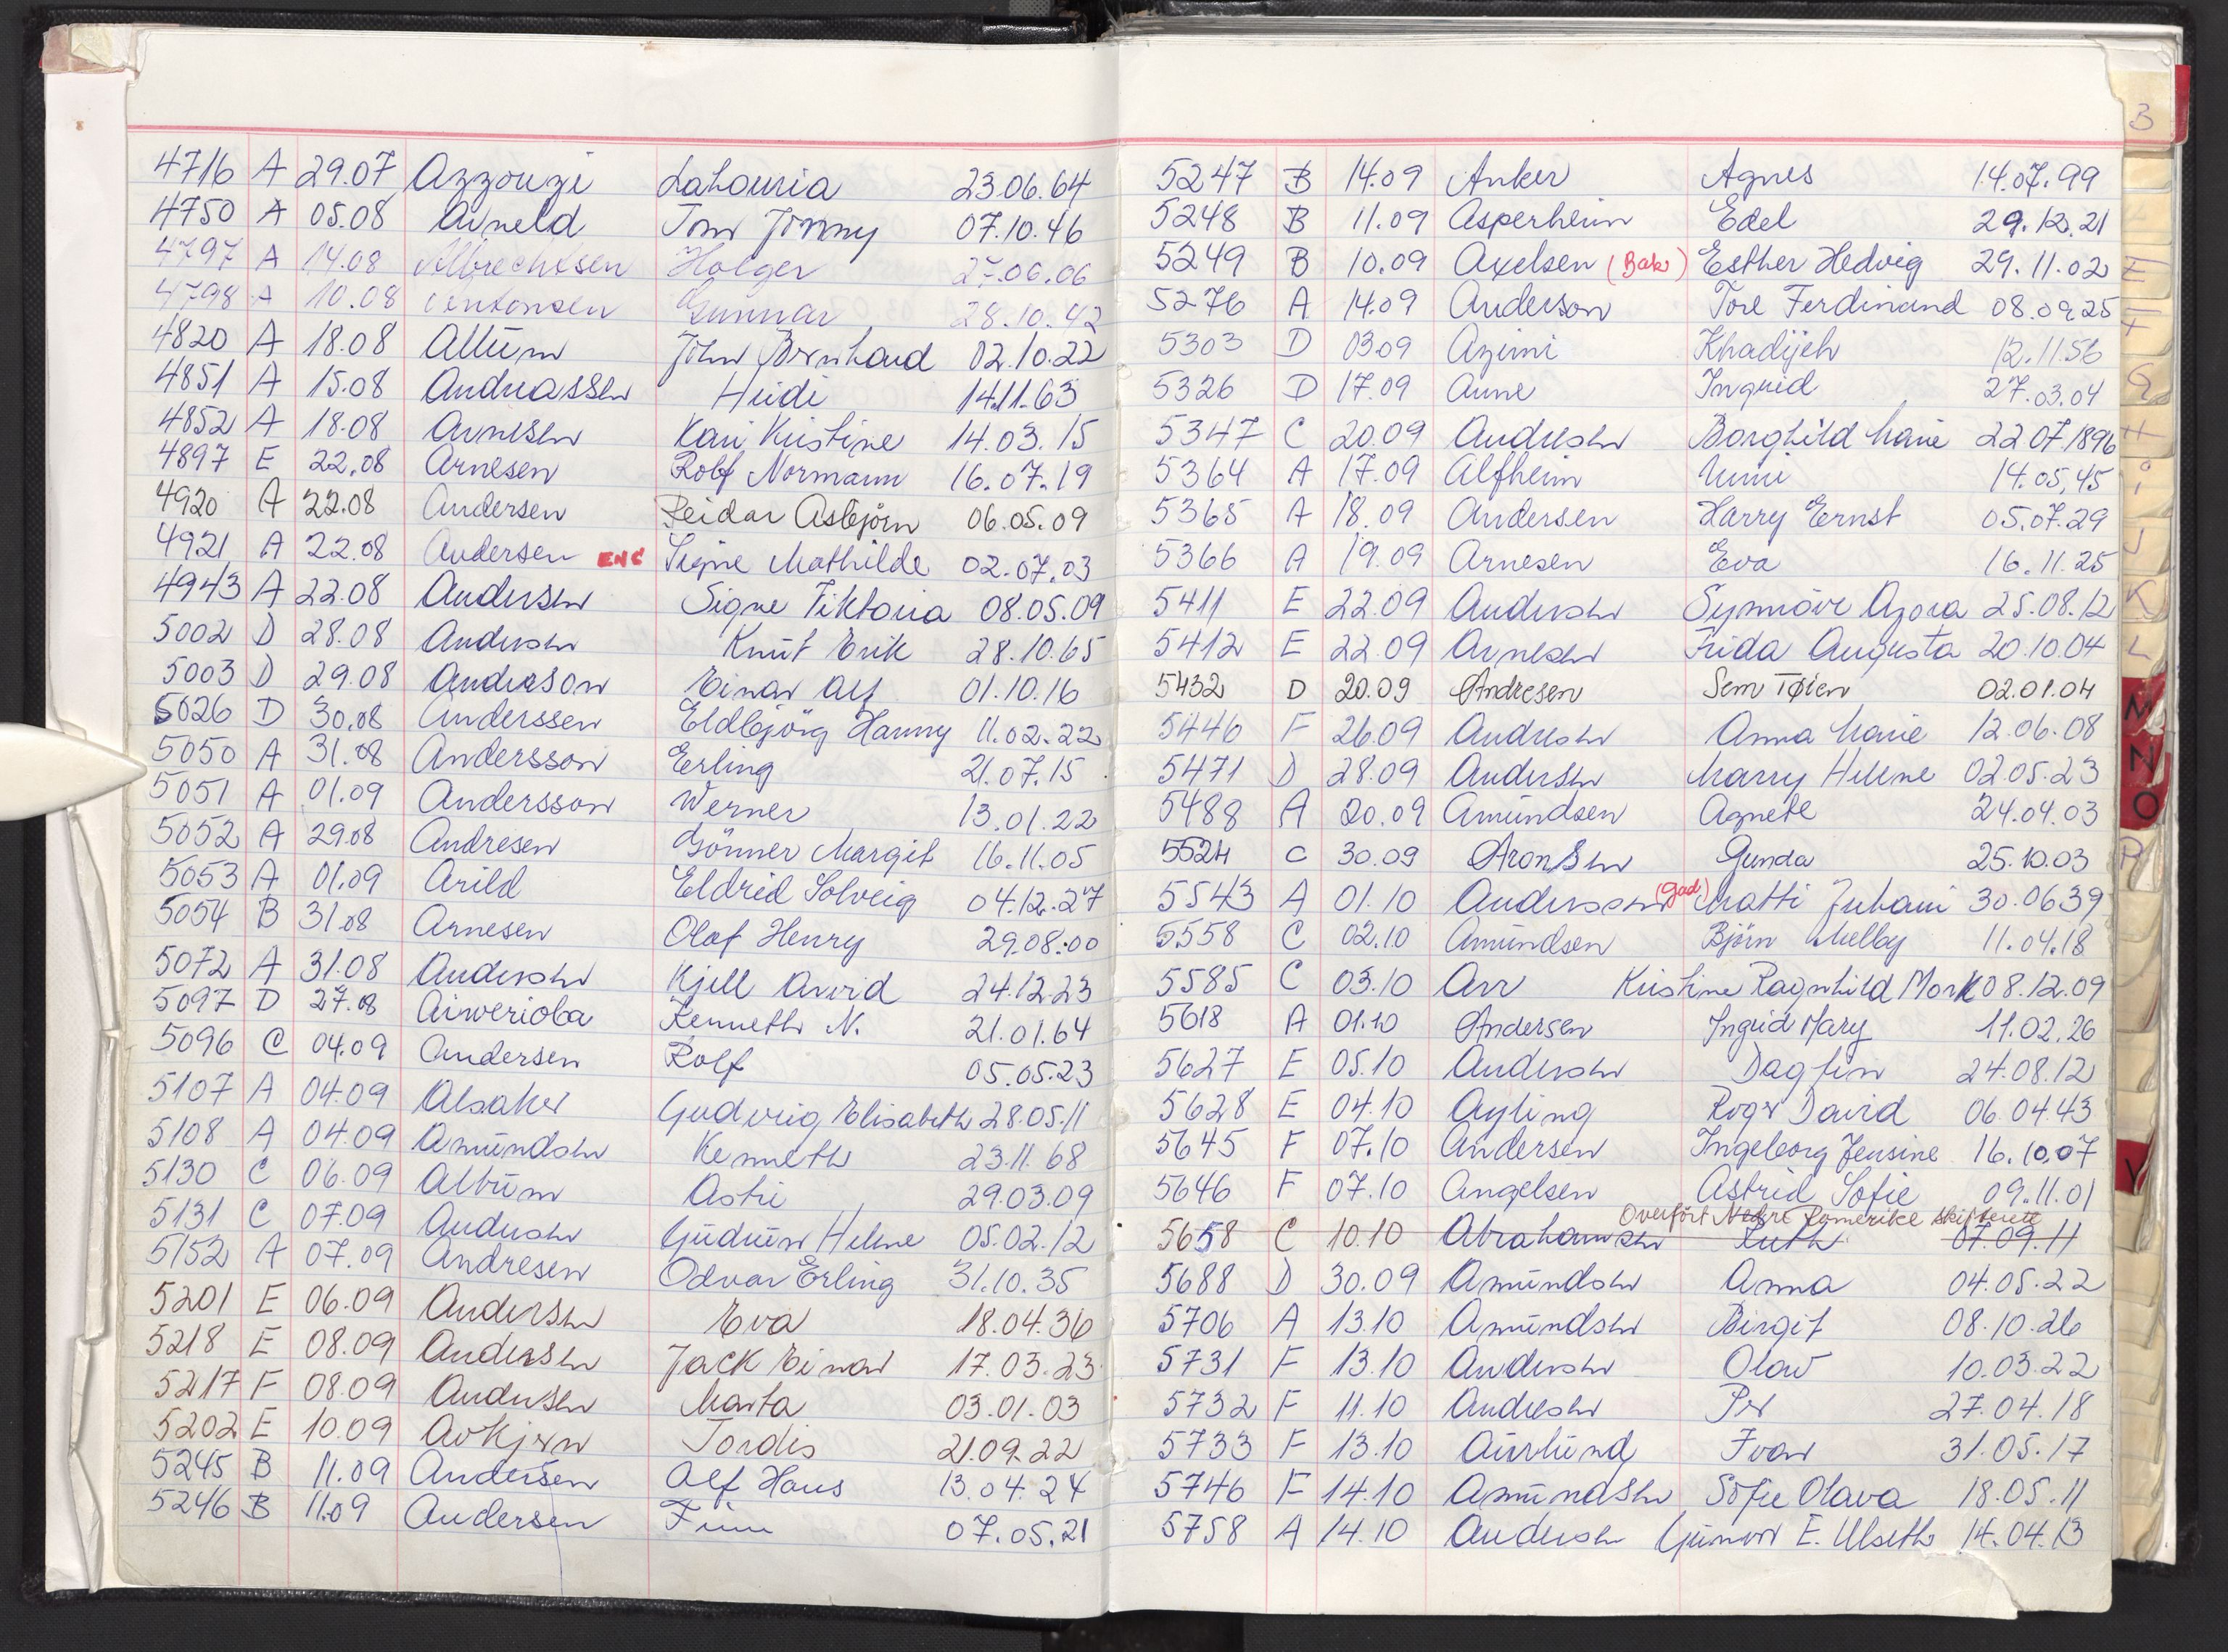 4716 A 29.07 Azzouzi Lahouria 23.06.64
4750 A 05.08 Arneld Tom Jonny 07.10.46
4797 A 14.08 Albrechtsen Holger 27.06.06
4798 A 10.08 Antonsen Gunnar 28.10.42
4820 A 18.08 Altum John Bernhard 02.10.22
4851 A 15.08 Andreassen Heidi 14.11.63
4852 A 18.08 Arnesen Kari Kristine 14.03.15
4897 E 22.08 Arnesen Rolf Normann 16.07.19
4920 A 22.08 Andersen Reidar Asbjörn 06.05.09
4921 A 22.08 Andersen ENC Signe Mathilde 02.07.03
4943 A 22.08 Andersen Signe Viktoria 08.05.09
5002 D 28.08 Andersen Knut Erik 28.10.65
5003 D 29.08 Anderson Einar Alf 01.10.16
5026 D 30.08 Anderssen Eldbjörg Hanny 11.02.22
5050 A 31.08 Andersson Erling 21.07.15
5051 A 01.09 Andersson Werner 13.01.22
5052 A 29.08 Andresen Gönner Margit 16.11.05
5053 A 01.09 Arild Eldrid Solveig 04.12.27
5054 B 31.08 Arnesen Olaf Henry 29.08.00
5072 A 31.08 Andersen Kjell Arvid 24.12.23
5097 D 27.08 Airwerioba Kenneth N. 21.01.64
5096 C 04.09 Andersen Rolf 05.05.23
5107 A 04.09 Alsaker Gudveig Elisabeth 28.05.11
5108 A 04.09 Amundsen Kenneth 23.11.68
5130 C 06.09 Altrum Astri 29.03.09
5131 C 07.09 Andersen Gudrun Helene 05.02.12
5152 A 07.09 Andresen Odvar Erling 31.10.35
5201 E 06.09 Andersen Eva 18.04.36
5218 E 08.09 Andersen Jack Einar 17.03.23
5217 F 08.09 Andersen Marta 03.01.03
5202 E 10.09 Avkjern Tordis 21.09.22
5245 B 11.09 Andersen Alf Hans 13.04.24
5246 B 11.09 Andersen Finn 07.05.21
B
5247 B 14.09 Anker Agnes 14.07.99
5248 B 11.09 Asperheim Edel 29.12.21
5249 B 10.09 Axelsen (Bak) Esther Hedvig 29.11.02
5276 A 14.09 Anderson Tore Ferdinand 08.09.25
5303 D 03.09 Azimi Khadijeh 12.11.56
5326 D 17.09 Aune Ingrid 27.03.04
5347 C 20.09 Andresen Borghild Marie 22.07.1896
5364 A 17.09 Alfheim Unni 14.05.45
5365 A 18.09 Andersen Harry Ernst 05.07.29
5366 A 19.09 Arnesen Eva 16.11.25
5411 E 22.09 Andersen Synnöve Agora 25.08.12
5412 E 22.09 Arnesen Frida Augusta 20.10.04
5432 D 20.09 Andresen Sem Tøien 02.01.04
5446 F 26.09 Andresen Anna Marie 12.06.08
5471 D 28.09 Andersen Marry Helene 02.05.23
5488 A 20.09 Amundsen Agnete 24.04.03
5524 C 30.09 Aronsen Gunda 25.10.03
5543 A 01.10 Anderssen (gad) Matti Juhani 30.06.39
5558 C 02.10 Amundsen Björn Melby 11.04.18
5585 C 03.10 Arr Kristine Ragnhild Mork 08.12.09
5618 A 01.10 Andersen Ingrid Mary 11.02.26
5627 E 05.10 Andersen Dagfin 24.08.12
5628 E 04.10 Ayling Roger David 06.04.43
5645 F 07.10 Andersen Ingeborg Jensine 16.10.07
5646 F 07.10 Angelsen Astrid Sofie 09.11.01
Overfört Nedre Romerike skifterett
5658 C 10.10 Abrahamsen Ruth 07.09.11
5688 D 30.09 Amundsen Anna 04.05.22
5706 A 13.10 Amundsen Birgit 08.10.26
5731 F 13.10 Andersen Olav 10.03.22
5732 F 11.10 Andresen Per 27.04.18
5733 F 13.10 Aurlund Ivar 31.05.17
5746 F 14.10 Amundsen Sofie Olava 18.05.11
5758 A 14.10 Andersen Gunvor E. Ulseth 14.04.13
E
F
G
H
i
J
K
L
M
N
O
P
V